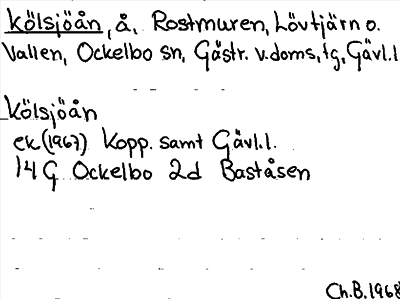 Kölsjöån, å, Rostmuren, Lövtjärn o.
Vallen, Ockelbo sn, Gästr. v. doms. tg, Gävl.l
Kölsjöån
ek (1967) Kopp. samt Gävl.l.
14 G Ockelbo 2d Baståsen
Ch.B. 1968